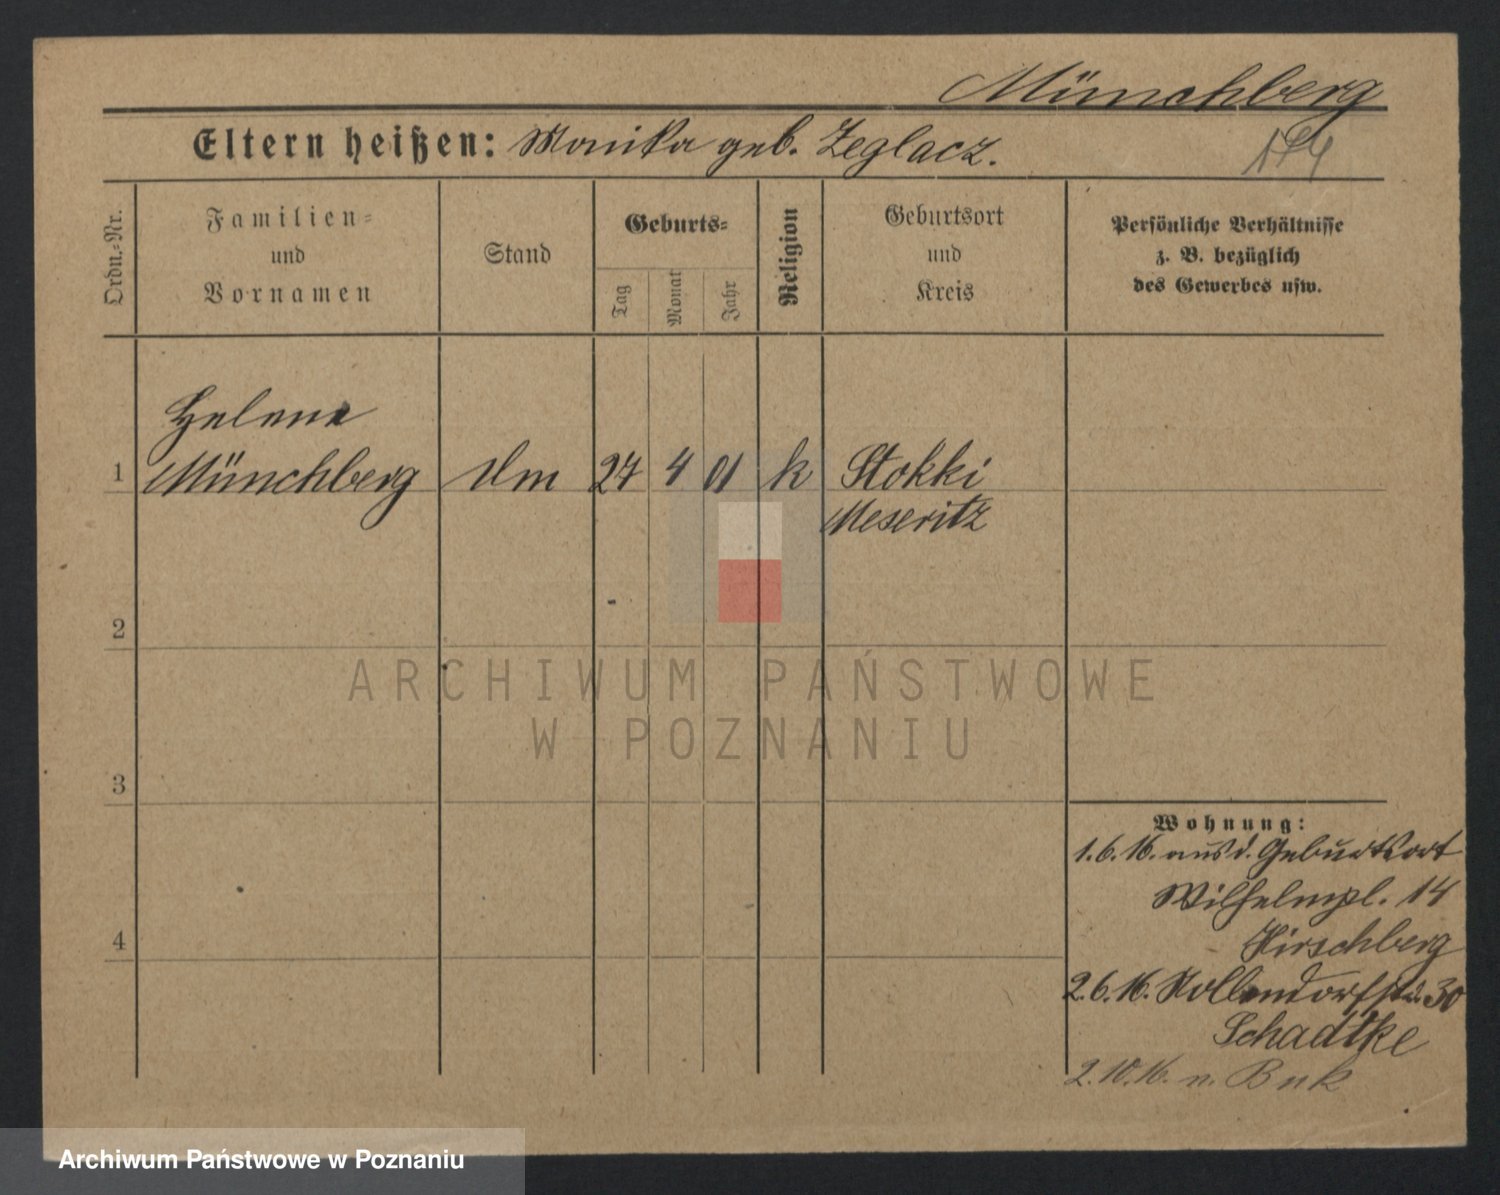 Münchberg
Eltern heißen: Monika geb. Zeglacz.
Ordn.-Nr.
Familien-
und
Vornamen
Stand
Geburts-
Tag
Monat
Jahr
Religion
Geburtsort
und
Kreis
Persönliche Verhältnisse
z. B. bezüglich
des Gewerbes usw.
Helene
1 Münchberg Dm 27 4 01 k Stokki
Meseritz
2
ARCHIWUM PAŃSTWOWE
W POZNANIU
3
Wohnung:
1.6.16. aus d. Geburtsort
Wilhelmpl. 14
Hirschberg
4
2.6.16. Nollendorfstr. 30
Schadtke
2.10.16. n. Buk
Archiwum Państwowe w Poznaniu